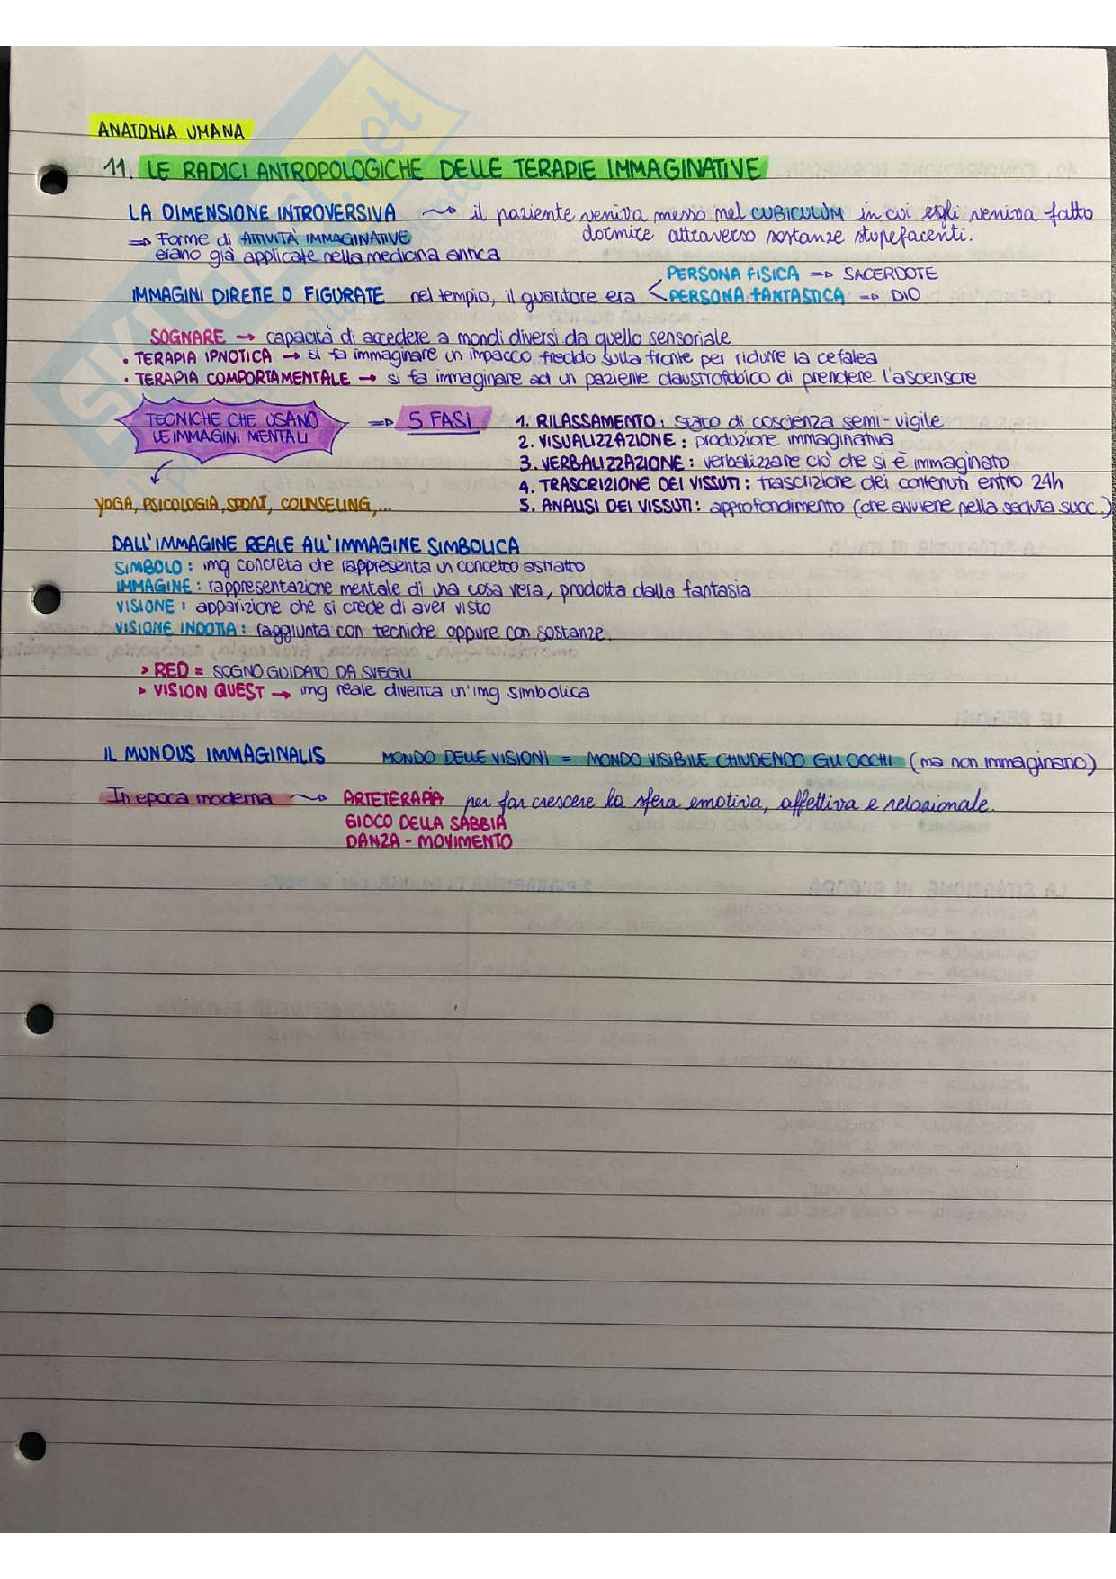 ANATOMIA UMANA
11. LE RADICI ANTROPOLOGICHE DELLE TERAPIE IMMAGINATIVE
LA DIMENSIONE INTROVERSIVA ~> il paziente veniva messo nel CUBICULUM in cui egli veniva fatto
dormire attraverso sostanze stupefacenti.
=> Forme di ATTIVITÀ IMMAGINATIVE
erano già applicate nella medicina antica
IMMAGINI DIRETTE O FIGURATE nel tempio, il guaritore era < PERSONA FISICA → SACERDOTE
PERSONA FANTASTICA => DIO
SOGNARE → capacità di accedere a mondi diversi da quello sensoriale
• TERAPIA IPNOTICA → si fa immaginare un impacco freddo sulla fronte per ridurre la cefalea
• TERAPIA COMPORTAMENTALE → si fa immaginare ad un paziente claustrofobico di prendere l'ascensore
TECNICHE CHE USANO
LE IMMAGINI MENTALI
=> 5 FASI
1. RILASSAMENTO: stato di coscienza semi-vigile
2. VISUALIZZAZIONE: produzione immaginativa
3. VERBALIZZAZIONE: verbalizzare ciò che si è immaginato
4. TRASCRIZIONE DEI VISSUTI: trascrizione dei contenuti entro 24h
5. ANALISI DEI VISSUTI: approfondimento (che avviene nella seduta succ.)
YOGA, PSICOLOGIA, SPORT, COUNSELING,...
DALL'IMMAGINE REALE ALL'IMMAGINE SIMBOLICA
SIMBOLO: img concreta che rappresenta un concetto astratto
IMMAGINE: rappresentazione mentale di una cosa vera, prodotta dalla fantasia
VISIONE: apparizione che si crede di aver visto
VISIONE INDOTTA: raggiunta con tecniche oppure con sostanze.
> RED = SOGNO GUIDATO DA SVEGLI
> VISION QUEST → img reale diventa un'img simbolica
IL MUNDUS IMMAGINALIS MONDO DELLE VISIONI = MONDO VISIBILE CHIUDENDO GLI OCCHI (ma non immaginario)
In epoca moderna ~> ARTETERAPIA per far crescere la sfera emotiva, affettiva e relazionale.
GIOCO DELLA SABBIA
DANZA - MOVIMENTO